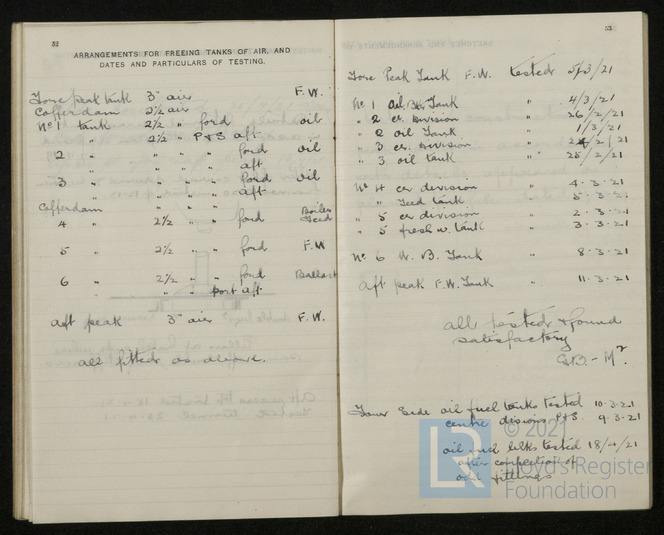 52
ARRANGEMENTS FOR FREEING TANKS OF AIR, AND
DATES AND PARTICULARS OF TESTING.
Fore peak tank 3" air F.W.
Cofferdam 2½ air
No 1 tank 2½ " ford oil
" 2½ P&S aft
2 " " " ford oil
" " " aft
3 " " " ford oil
" " " aft
Cofferdam
4 " 2½ " " ford Boiler Feed
5 " 2½ " " ford F.W
6 " 2½ " " ford Ballast
" " " port aft
Aft peak 3" air F.W.
all fitted as above.
53
Fore Peak Tank F.W. tested 5/3/21
No 1 oil Tank " 4/3/21
" 2 cr. division " 26/2/21
" 2 oil Tank " 1/3/21
" 3 cr. division " 2/21
" 3 oil tank " 25/2/21
No 4 cr division " 4.3.21
" Feed tank " 5.3.21
" 5 cr division " 2.3.21
" 5 fresh w. tank " 3.3.21
No 6 W. B. Tank " 8.3.21
Aft peak F.W. Tank " 11.3.21
all tested & found
satisfactory
Four Side oil fuel tanks tested 10.3.21
centre P&S. 9.3.21
oil fuel tested 18/4/21
after completion of
fittings
LR
© 2021
Lloyd's Register
Foundation